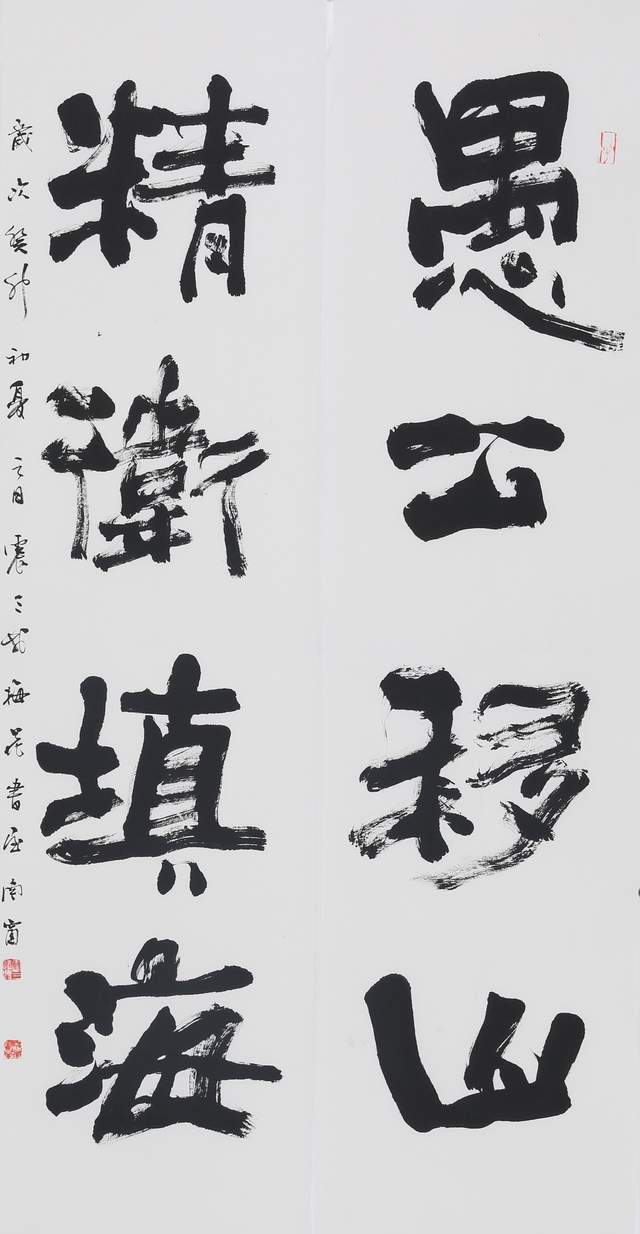 愚公移山
精衛填海
歲次癸卯初夏之日震三於梅花書屋南窗